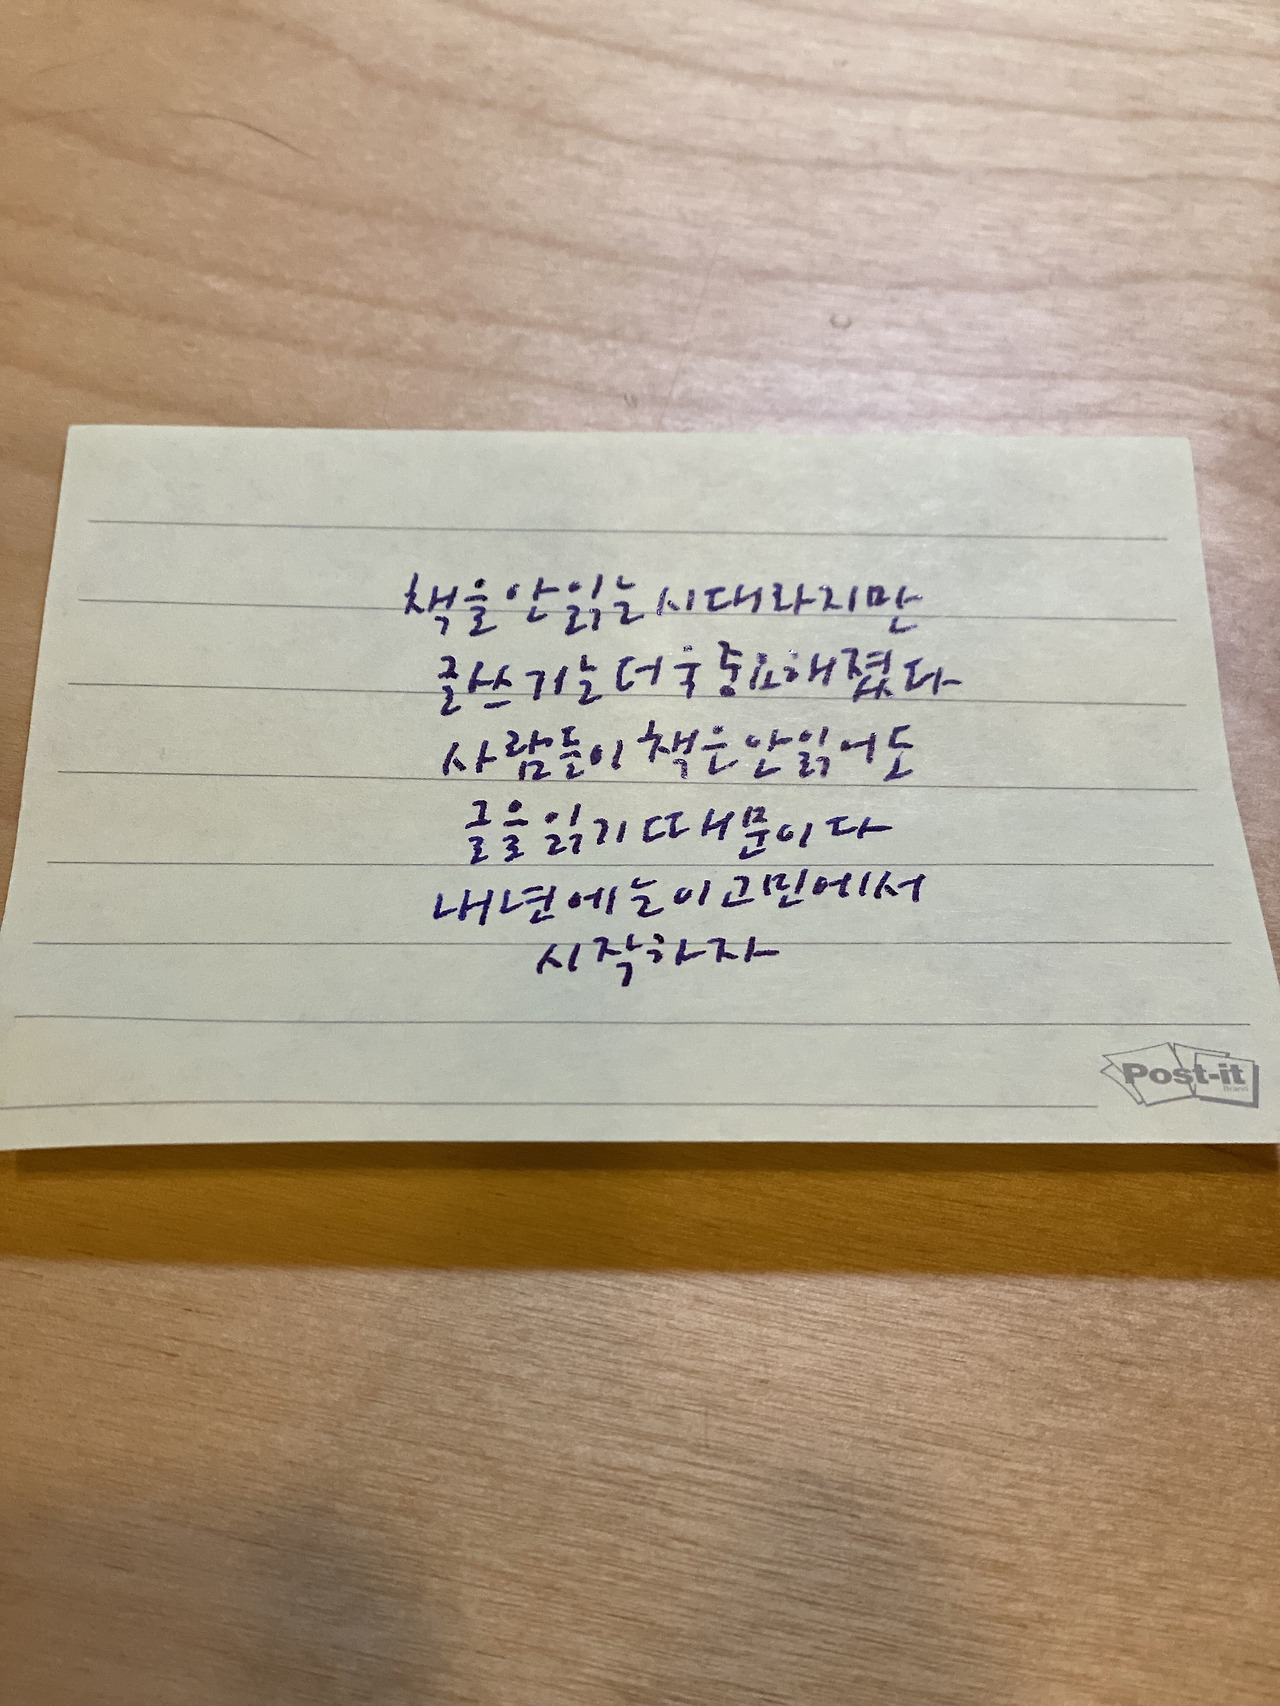 책을 안 읽는 시대라지만
글쓰기는 더욱 중요해졌다
사람들이 책은 안 읽어도
글을 읽기 때문이다
내년에는 이 고민에서
시작하자
Post-it
Brand